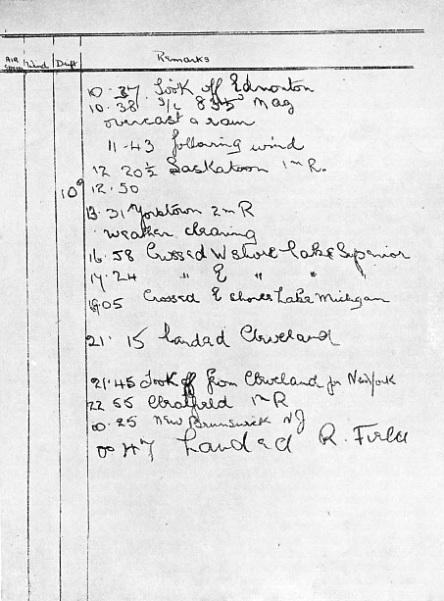 AIR SPEED Wind Drift Remarks
10.37 Took off Edmonton
10.38 S/c 83½° Mag
overcast & rain
11-43 following wind
12 20½ Saskatoon 1m R.
10° 12.50
13.31 Yorktown 2m R
weather clearing
16.58 Crossed W shore Lake Superior
17.24 " E " " "
19.05 Crossed E shores Lake Michigan
21.15 Landed Cleveland
21.45 Took off from Cleveland for New York
22 55 1m R
00.25 New Brunswick NJ
00 47 Landed R. Field